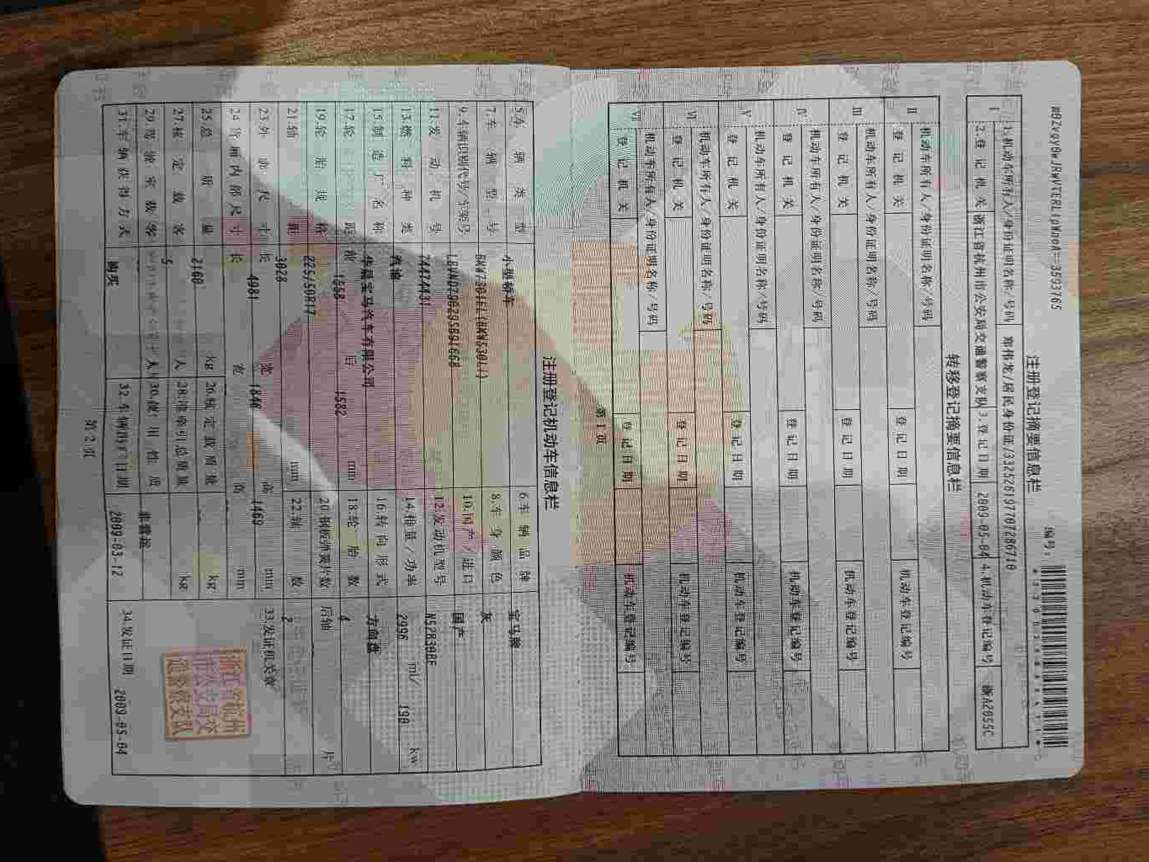 注册登记摘要信息栏
编号：
I 1.机动车所有人/身份证明名称/号码 郑伟龙/居民身份证/332526197707286718
2.登记机关 浙江省杭州市公安局交通警察支队 3.登记日期 2009-05-04 4.机动车登记编号 浙A2055C
转移登记摘要信息栏
II 机动车所有人/身份证明名称/号码
登记机关 登记日期 机动车登记编号
III 机动车所有人/身份证明名称/号码
登记机关 登记日期 机动车登记编号
IV 机动车所有人/身份证明名称/号码
登记机关 登记日期 机动车登记编号
V 机动车所有人/身份证明名称/号码
登记机关 登记日期 机动车登记编号
VI 机动车所有人/身份证明名称/号码
登记机关 登记日期 机动车登记编号
VII 机动车所有人/身份证明名称/号码
登记机关 登记日期 机动车登记编号
第1页
注册登记机动车信息栏
5.车辆类型 小型轿车 6.车辆品牌 宝马牌
7.车辆型号 8.车身颜色 灰
9.车辆识别代号/车架号 10.国产/进口 国产
11.发动机号 12.发动机型号 N52B30BF
13.燃料种类 汽油 14.排量/功率 2996 ml/ 190 kw
15.制造厂名称 华晨宝马汽车有限公司 16.转向形式 方向盘
17.轮距 前 1558 后 1582 mm 18.轮胎数 4
19.轮胎规格 225/50R17 20.钢板弹簧片数 后轴 片
21.轴距 3028 mm 22.轴数 2
23.外廓尺寸 长 4981 宽 1846 高 1469 mm 33.发证机关章
24.货厢内部尺寸 长 宽 高 mm
25.总质量 2160 kg 26.核定载质量 kg
27.核定载客 5 人 28.准牵引总质量 kg
29.驾驶室载客 人 30.使用性质 非营运
31.车辆获得方式 购买 32.车辆出厂日期 2009-03-12 34.发证日期 2009-05-04
浙江省杭州
市公安局交
通警察支队
第2页